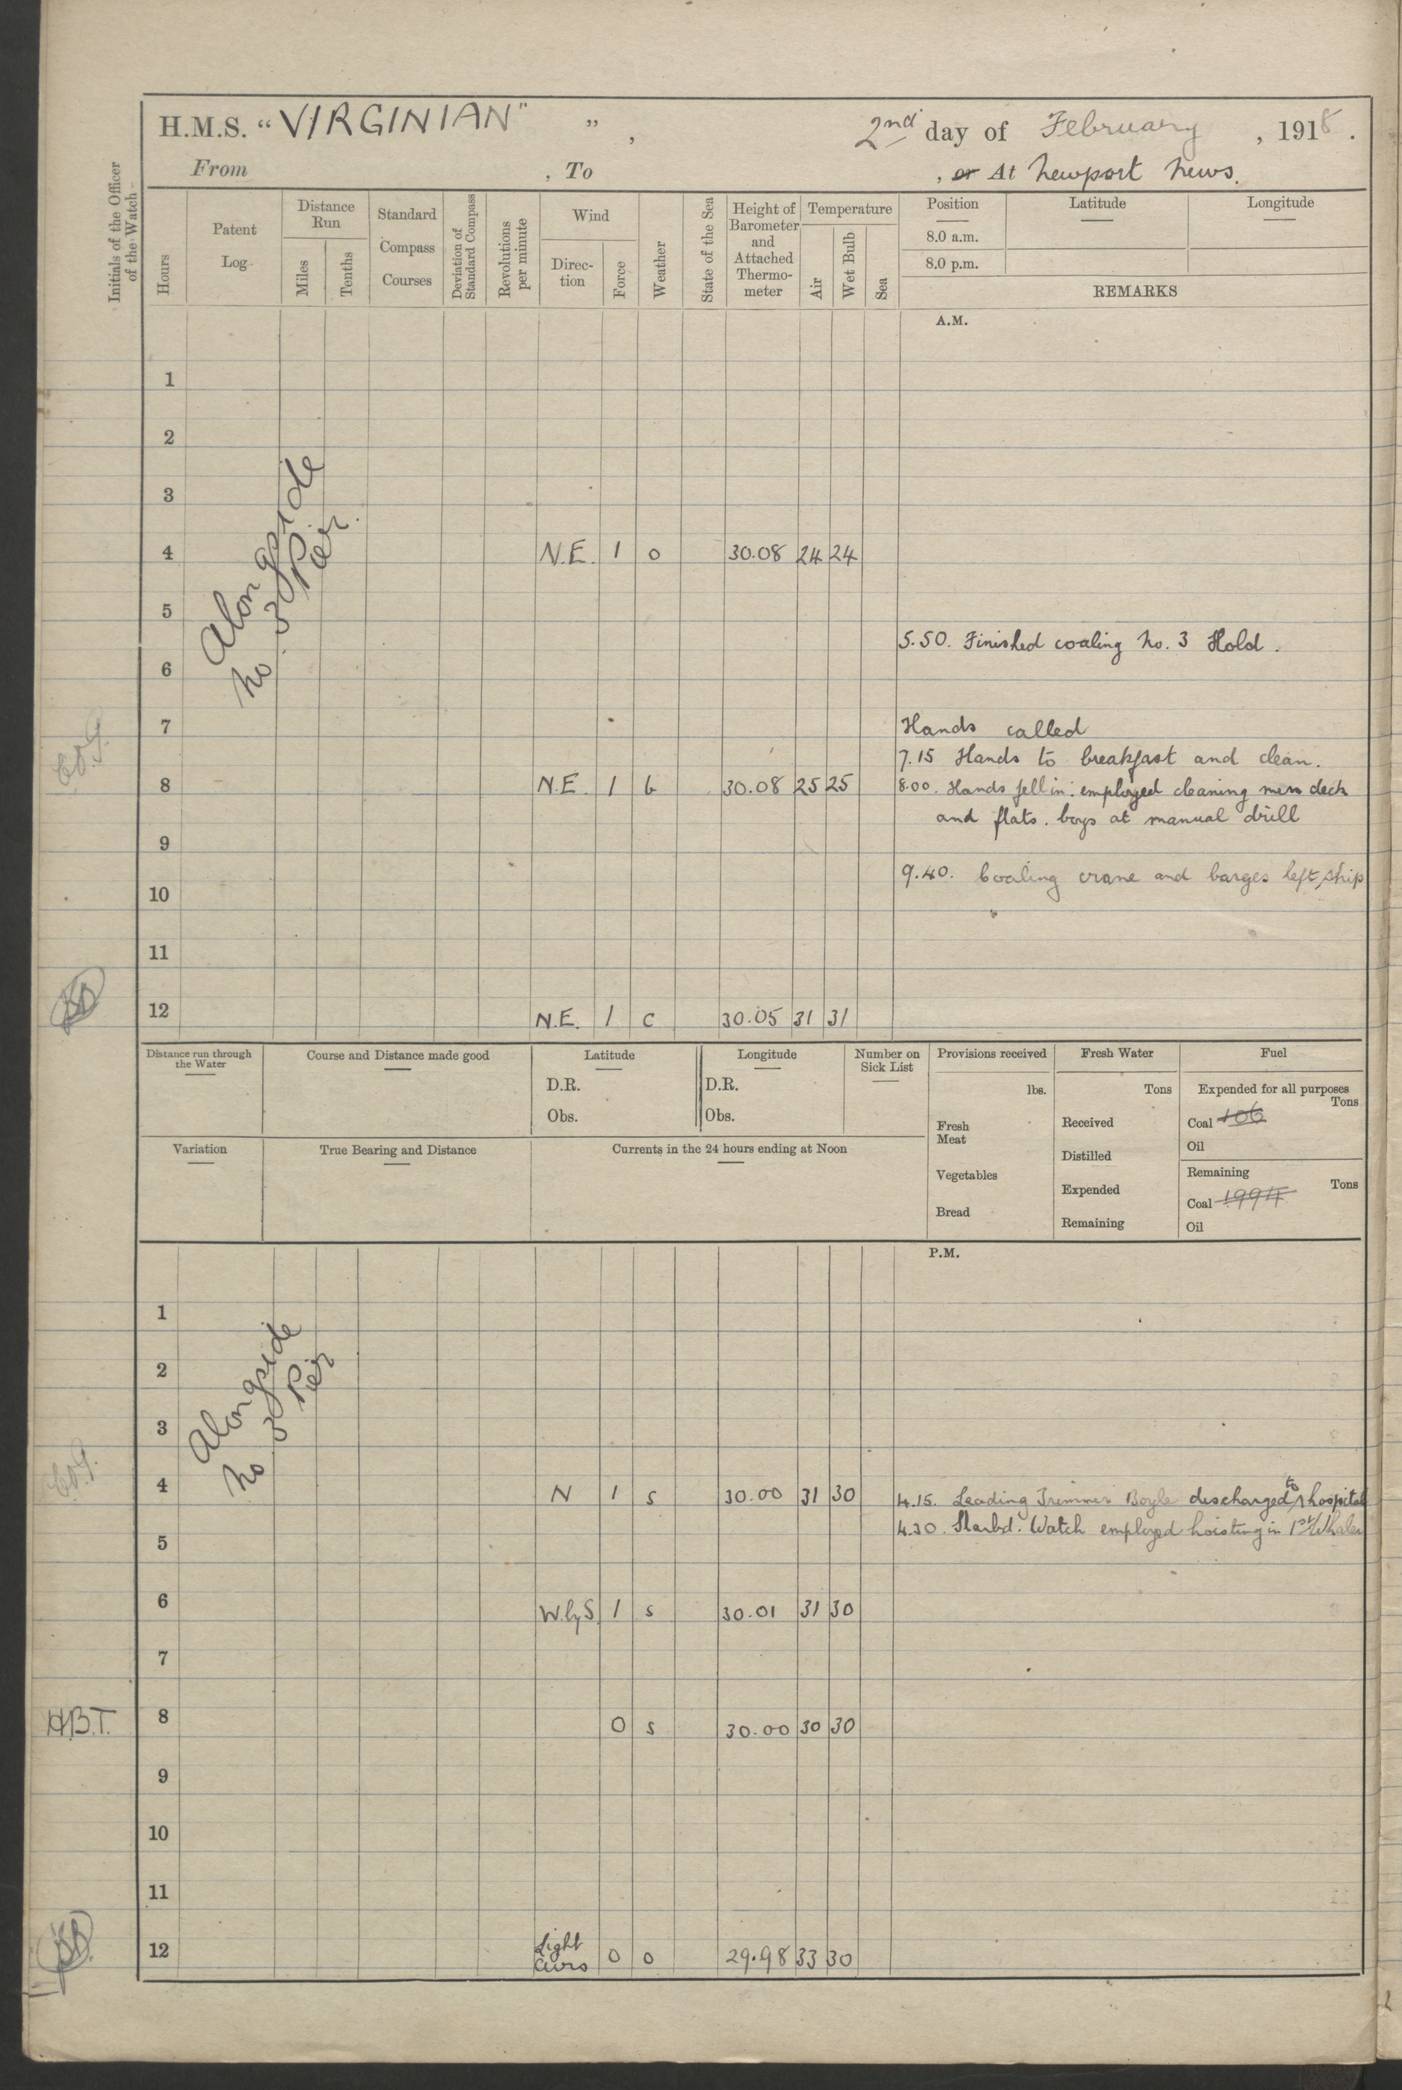 H.M.S. "VIRGINIAN" ", 2nd day of February, 1918.
From , To , or At Newport News.
Initials of the Officer of the Watch
Hours
Patent Log
Distance Run
Miles
Tenths
Standard Compass Courses
Deviation of Standard Compass
Revolutions per minute
Wind
Direc-tion
Force
Weather
State of the Sea
Height of Barometer and Attached Thermo-meter
Temperature
Air
Wet Bulb
Sea
Position
8.0 a.m.
8.0 p.m.
Latitude
Longitude
REMARKS
A.M.
1
2
3
Alongside
No 3 Pier.
4 N.E. 1 o 30.08 24 24
5
5.50. Finished coaling No. 3 Hold.
6
7 Hands called
7.15 Hands to breakfast and clean.
8 N.E. 1 b 30.08 25 25 8.00. Hands fell in: employed cleaning mess deck
and flats. boys at manual drill
9
9.40. Coaling crane and barges left ship
10
11
12 N.E. 1 c 30.05 31 31
Distance run through the Water
Course and Distance made good
Latitude
D.R.
Obs.
Longitude
D.R.
Obs.
Number on Sick List
Provisions received
lbs.
Fresh Meat
Vegetables
Bread
Fresh Water
Tons
Received
Distilled
Expended
Remaining
Fuel
Expended for all purposes
Tons
Coal 106
Oil
Remaining
Tons
Coal 1994
Oil
Variation
True Bearing and Distance
Currents in the 24 hours ending at Noon
P.M.
1
2
3
Alongside
No 3 Pier
4 N 1 s 30.00 31 30 4.15. Leading Trimmer Boyle discharged to hospital
4.30. Starbd. Watch employed hoisting in 1st Whaler
5
6 W.byS. 1 s 30.01 31 30
7
H.B.T. 8 0 s 30.00 30 30
9
10
11
12 Light airs 0 o 29.98 33 30